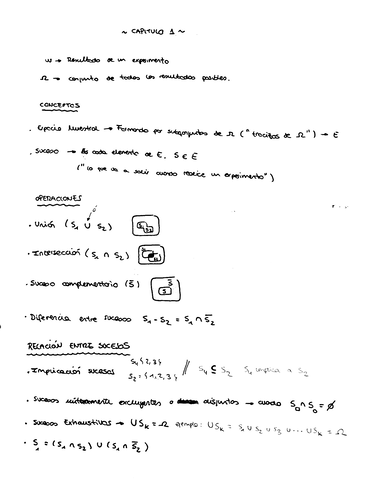 ~ CAPITULO 1 ~
ω → Resultado de un experimento
Ω → conjunto de todos los resultados posibles.
CONCEPTOS
. Espacio Muestral → Formando por subconjuntos de Ω ("trocitos de Ω") → E
. Suceso → Es cada elemento de E, S ∈ E
("lo que va a salir cuando realice un experimento")
OPERACIONES
. Unión (S₁ ∪ S₂)
. Intersección (S₁ ∩ S₂)
. Suceso complementario (S̅) S̅ S
. Diferencia entre sucesos S₁ - S₂ = S₁ ∩ S̅₂
RELACIÓN ENTRE SUCESOS
. Implicación sucesos S₁{2,3} S₂={1,2,3} // S₁ ⊆ S₂ S₁ implica a S₂
. Sucesos mutuamente excluyentes o disjuntos → cuando ∩ = ∅
. Sucesos Exhaustivos → ∪Sₖ = Ω ejemplo: ∪Sₖ = S₁ ∪ S₂ ∪ S₃ ∪ ... ∪ Sₖ = Ω
. S₁ = (S₁ ∩ S₂) ∪ (S₁ ∩ S̅₂)